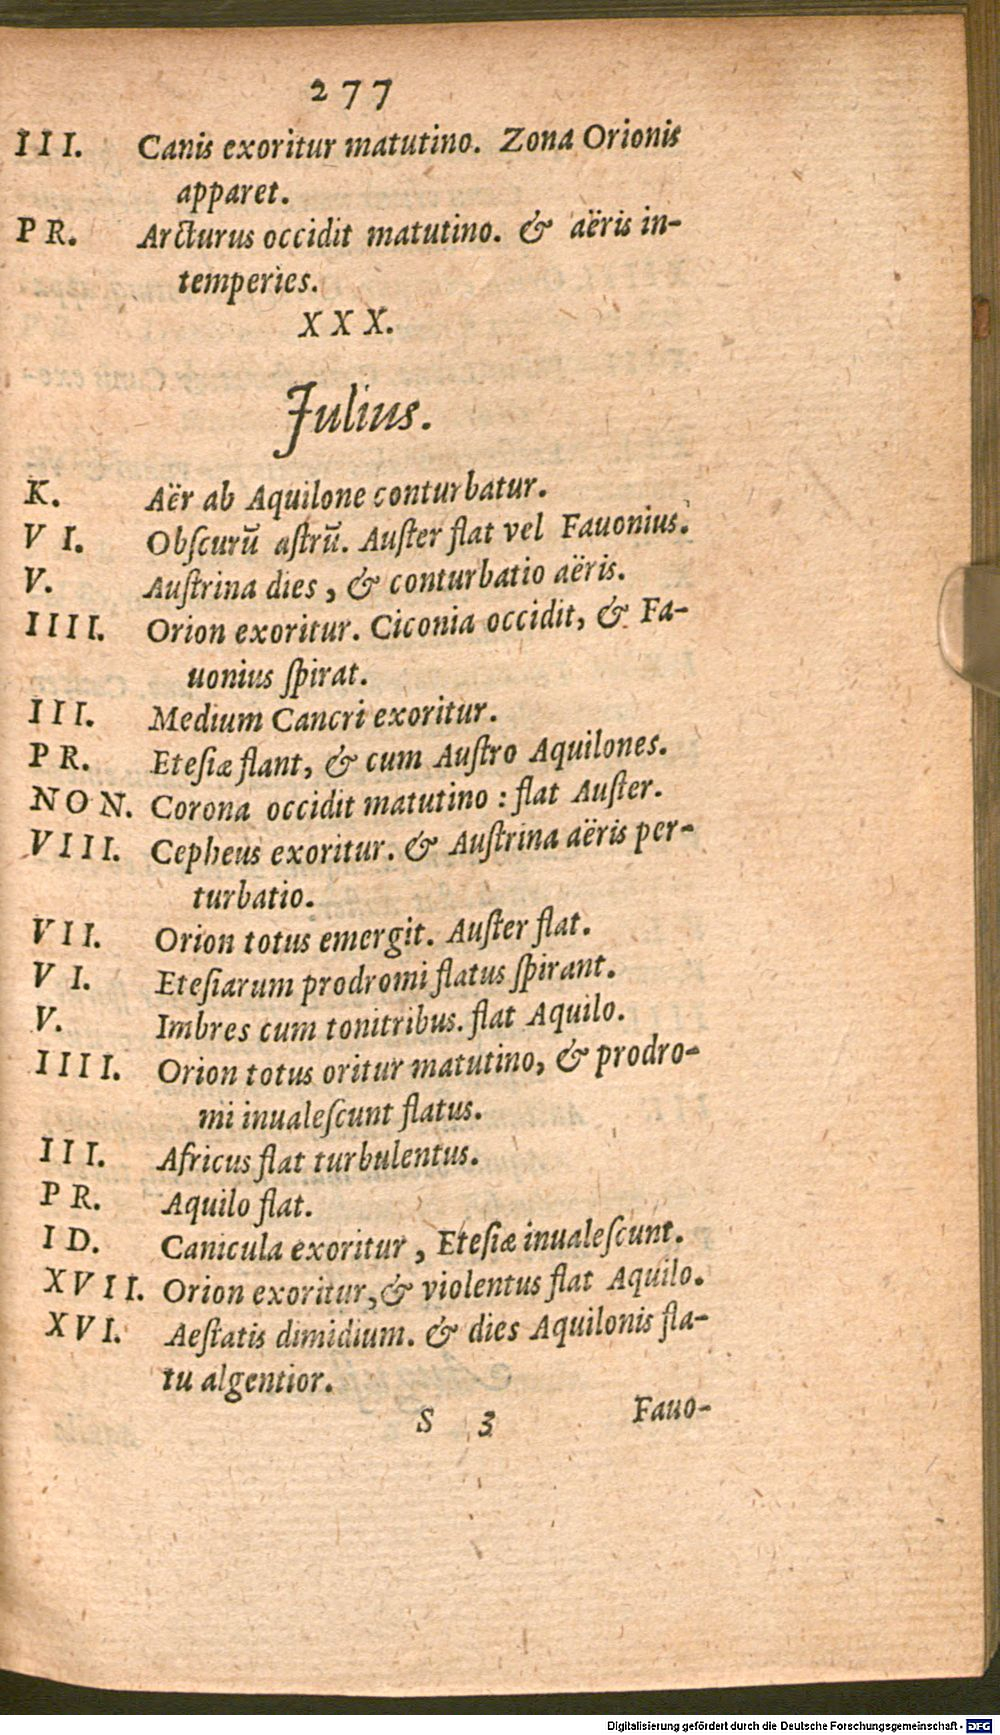 277
III. Canis exoritur matutino. Zona Orionis
apparet.
PR. Arcturus occidit matutino. & aëris in-
temperies.
XXX.
Julius.
K. Aër ab Aquilone conturbatur.
VI. Obſcurũ aſtrũ. Auſter flat vel Fauonius.
V. Auſtrina dies, & conturbatio aëris.
IIII. Orion exoritur. Ciconia occidit, & Fa-
uonius ſpirat.
III. Medium Cancri exoritur.
PR. Eteſiæ flant, & cum Auſtro Aquilones.
NON. Corona occidit matutino: flat Auſter.
VIII. Cepheus exoritur. & Auſtrina aëris per-
turbatio.
VII. Orion totus emergit. Auſter flat.
VI. Eteſiarum prodromi flatus ſpirant.
V. Imbres cum tonitribus. flat Aquilo.
IIII. Orion totus oritur matutino, & prodro-
mi inualeſcunt flatus.
III. Africus flat turbulentus.
PR. Aquilo flat.
ID. Canicula exoritur, Eteſiæ inualeſcunt.
XVII. Orion exoritur, & violentus flat Aquilo.
XVI. Aeſtatis dimidium. & dies Aquilonis fla-
tu algentior.
S 3 Fauo-
Digitalisierung gefördert durch die Deutsche Forschungsgemeinschaft - DFG